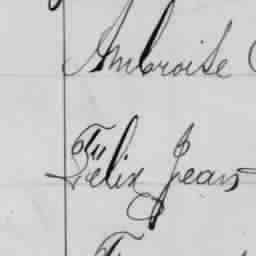 Ambroise
Félix Jean